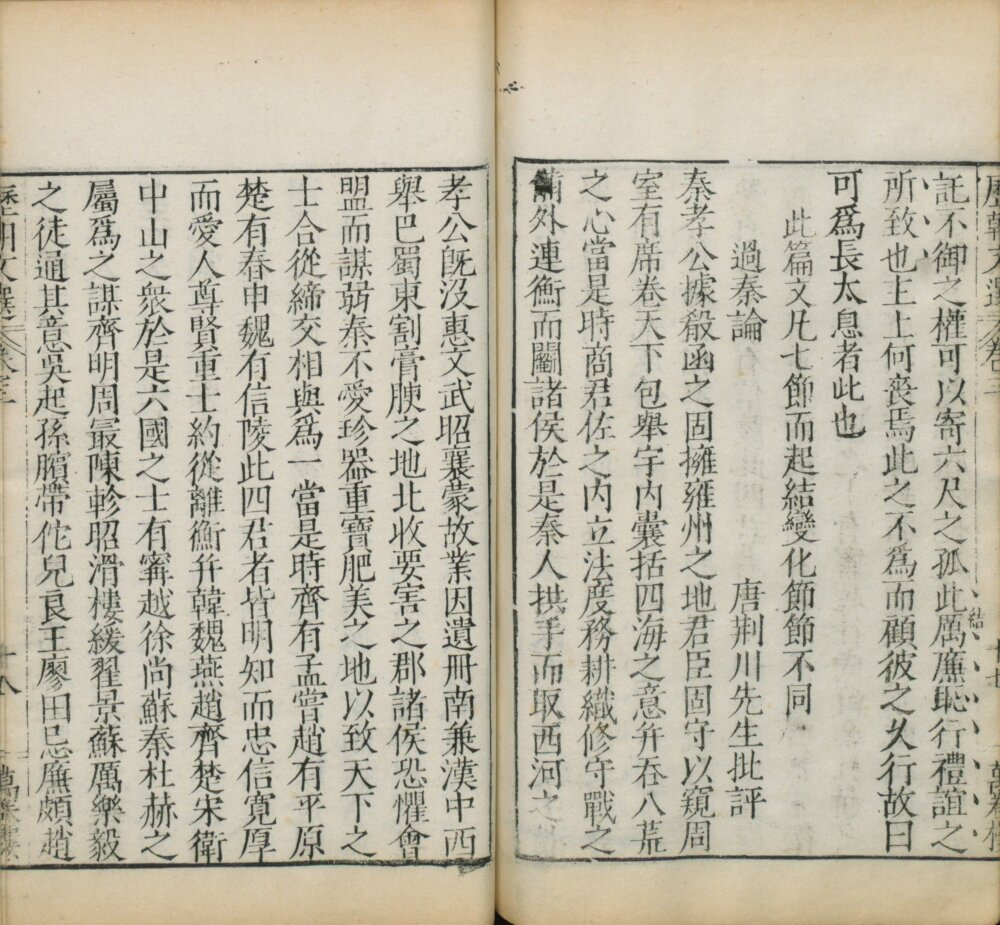 託不御之權可以寄六尺之孤此厲廉恥行禮誼之
結
所致也主上何喪焉此之不爲而顧彼之久行故曰
可爲長太息者此也
此篇文凡七節而起結變化節節不同
過秦論 唐荆川先生批評
秦孝公據殽函之固擁雍州之地君臣固守以窺周
室有席卷天下包舉宇内囊括四海之意并吞八荒
之心當是時商君佐之内立法度務耕織修守戰之
備外連衡而鬭諸侯於是秦人拱手而取西河之
孝公旣沒惠文武昭襄蒙故業因遺冊南兼漢中西
舉巴蜀東割膏腴之地北收要害之郡諸侯恐懼會
盟而謀弱秦不愛珍器重寶肥美之地以致天下之
士合從締交相與爲一當是時齊有孟嘗趙有平原
楚有春申魏有信陵此四君者皆明知而忠信寬厚
而愛人尊賢重士約從離衡并韓魏燕趙齊楚宋衛
中山之衆於是六國之士有甯越徐尚蘇秦杜赫之
屬爲之謀齊明周最陳軫昭滑樓緩翟景蘇厲樂毅
之徒通其意吳起孫臏帶佗兒良王廖田忌廉頗趙